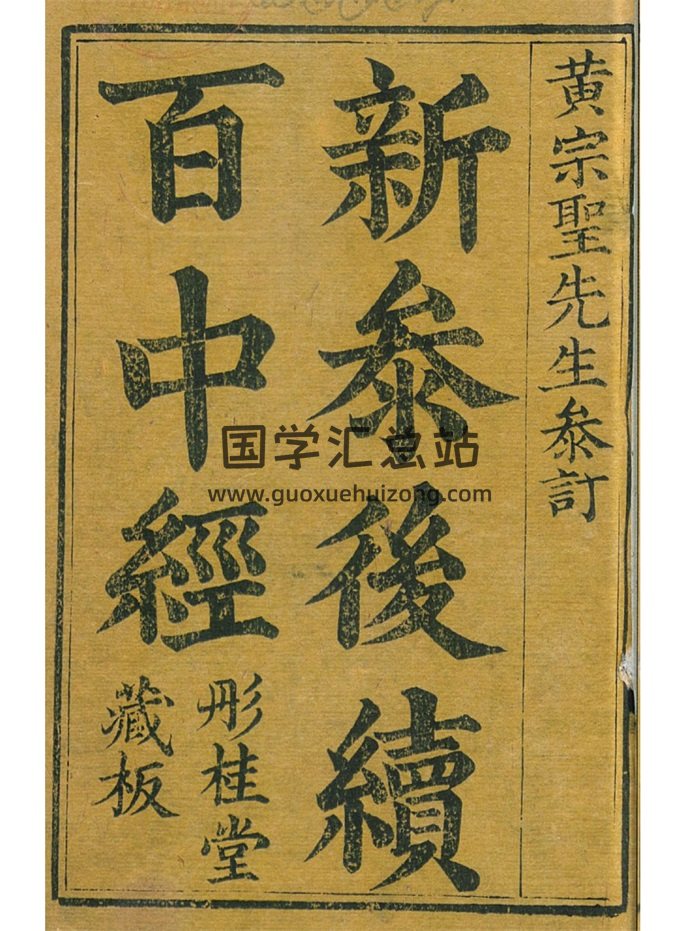 黄宗聖先生叅訂
新叅後續
百中經
彤桂堂
藏板
国学汇总站
www.guoxuehuizong.com